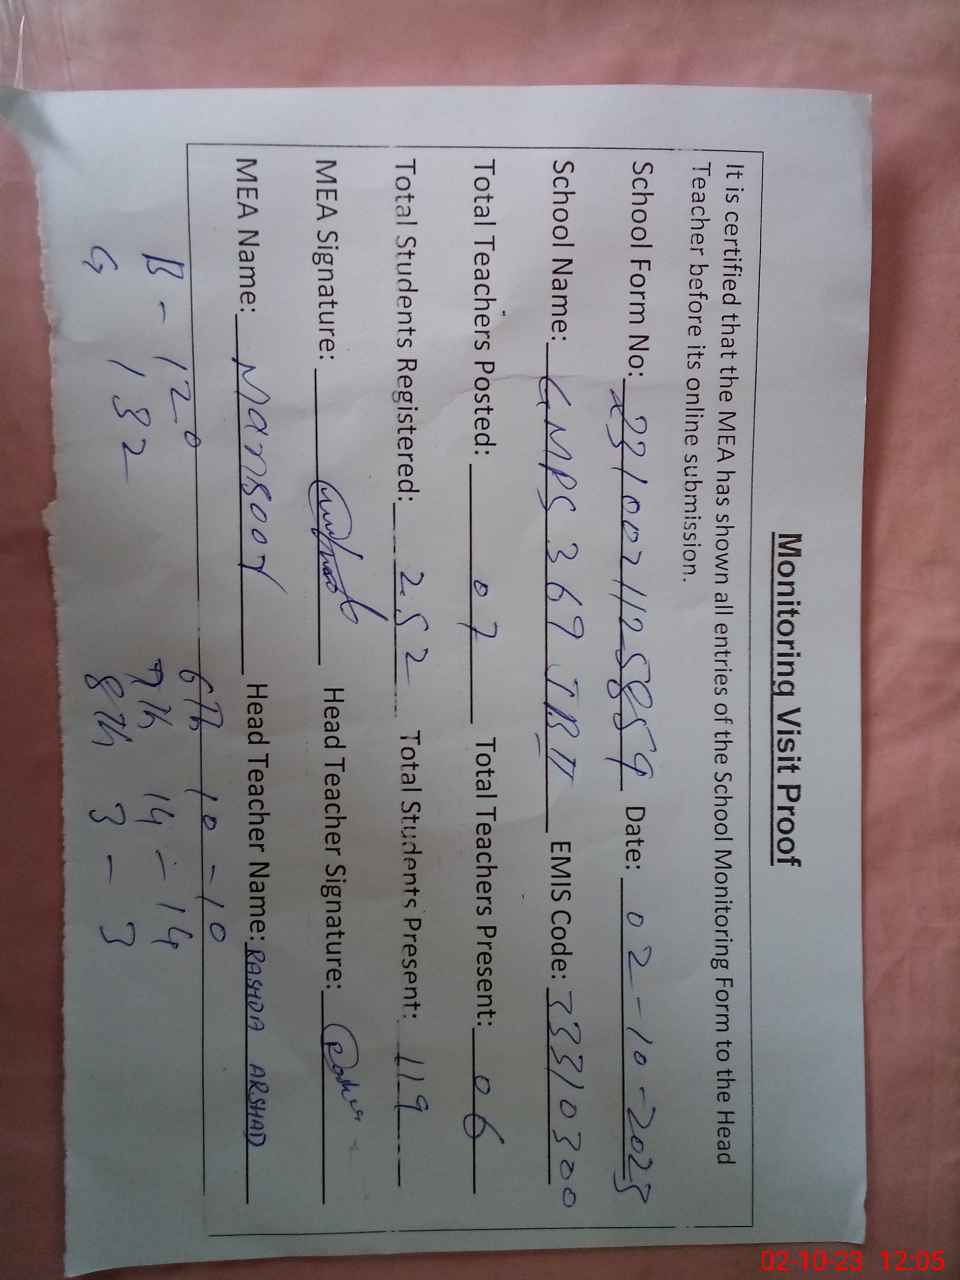 Monitoring Visit Proof
It is certified that the MEA has shown all entries of the School Monitoring Form to the Head
Teacher before its online submission.
School Form No: 231007112585 9 Date: 02-10-2023
School Name: GMPS 367 JB II EMIS Code: 33310300
Total Teachers Posted: 07 Total Teachers Present: 06
Total Students Registered: 252 Total Students Present: 119
MEA Signature: Head Teacher Signature:
MEA Name: Mansoor Head Teacher Name: RASHDA ARSHAD
6Th 10 - 10
B - 120 7Th 14 - 14
G 132 8Th 3 - 3
02-10-23 12:05